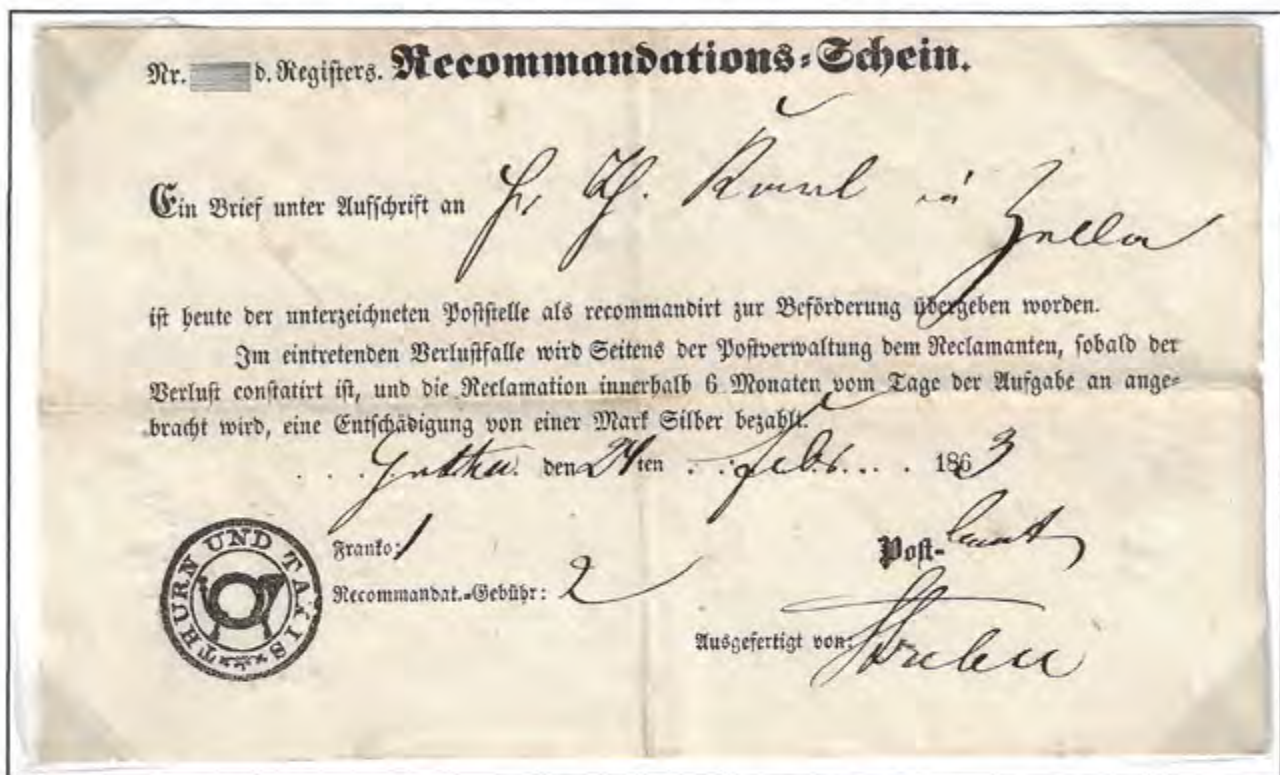 Nr. d. Registers. Recommandations-Schein.
Ein Brief unter Aufschrift an Hr. Th. in Zella
ist heute der unterzeichneten Poststelle als recommandirt zur Beförderung übergeben worden.
Im eintretenden Verlustfalle wird Seitens der Postverwaltung dem Reclamanten, sobald der
Verlust constatirt ist, und die Reclamation innerhalb 6 Monaten vom Tage der Aufgabe an ange-
bracht wird, eine Entschädigung von einer Mark Silber bezahlt.
Gotha. den 24ten Febr. 1863
THURN UND TAXIS
Franko: 1
Post-amt
Recommandat.-Gebühr: 2
Ausgefertigt von: